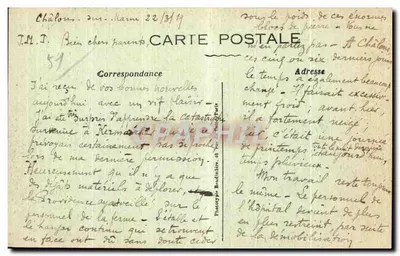 Châlons-sur-Marne 22/3/19
Bien chers parents,
CARTE POSTALE
Correspondance
51
J'ai reçu de vos bonnes nouvelles
aujourd'hui avec un vif plaisir.
J'ai été surpris d'apprendre la catastrophe
survenue à
prévoyait certainement pas
lors de ma dernière permission.
Heureusement qu'il n'y a que
des dégâts matériels à déplorer,
la Providence a veillé sur le
personnel de la ferme - L'étable et
le hangar contigu qui se trouvent
en face ont dû sans doute céder
sous le poids de ces énormes
blocs de pierre -
m'en parlez pas - A Châlons
ces cinq ou six derniers jours
Adresse
le temps a également beaucoup
changé - Il faisait excessive-
ment froid ; avant hier
il a fortement neigé
c'était une journée
de printemps
aujourd'hui,
temps pluvieux.
Mon travail reste toujours
le même - Le personnel de
l'hôpital devient de plus
en plus restreint, par suite
de la démobilisation.